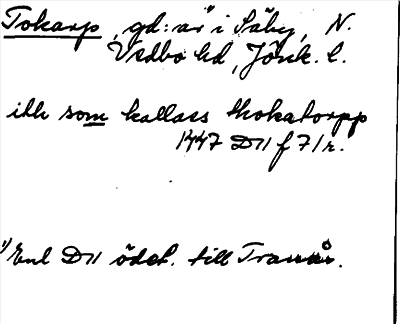 Tokarp, gd:ar¹⁾ i Säby, N.
Vedbo hd, Jönk. l.
ith som kallass thokatorpp
1447 D11 f 71r.
¹⁾ Enl D11 ödet. till Tranås.